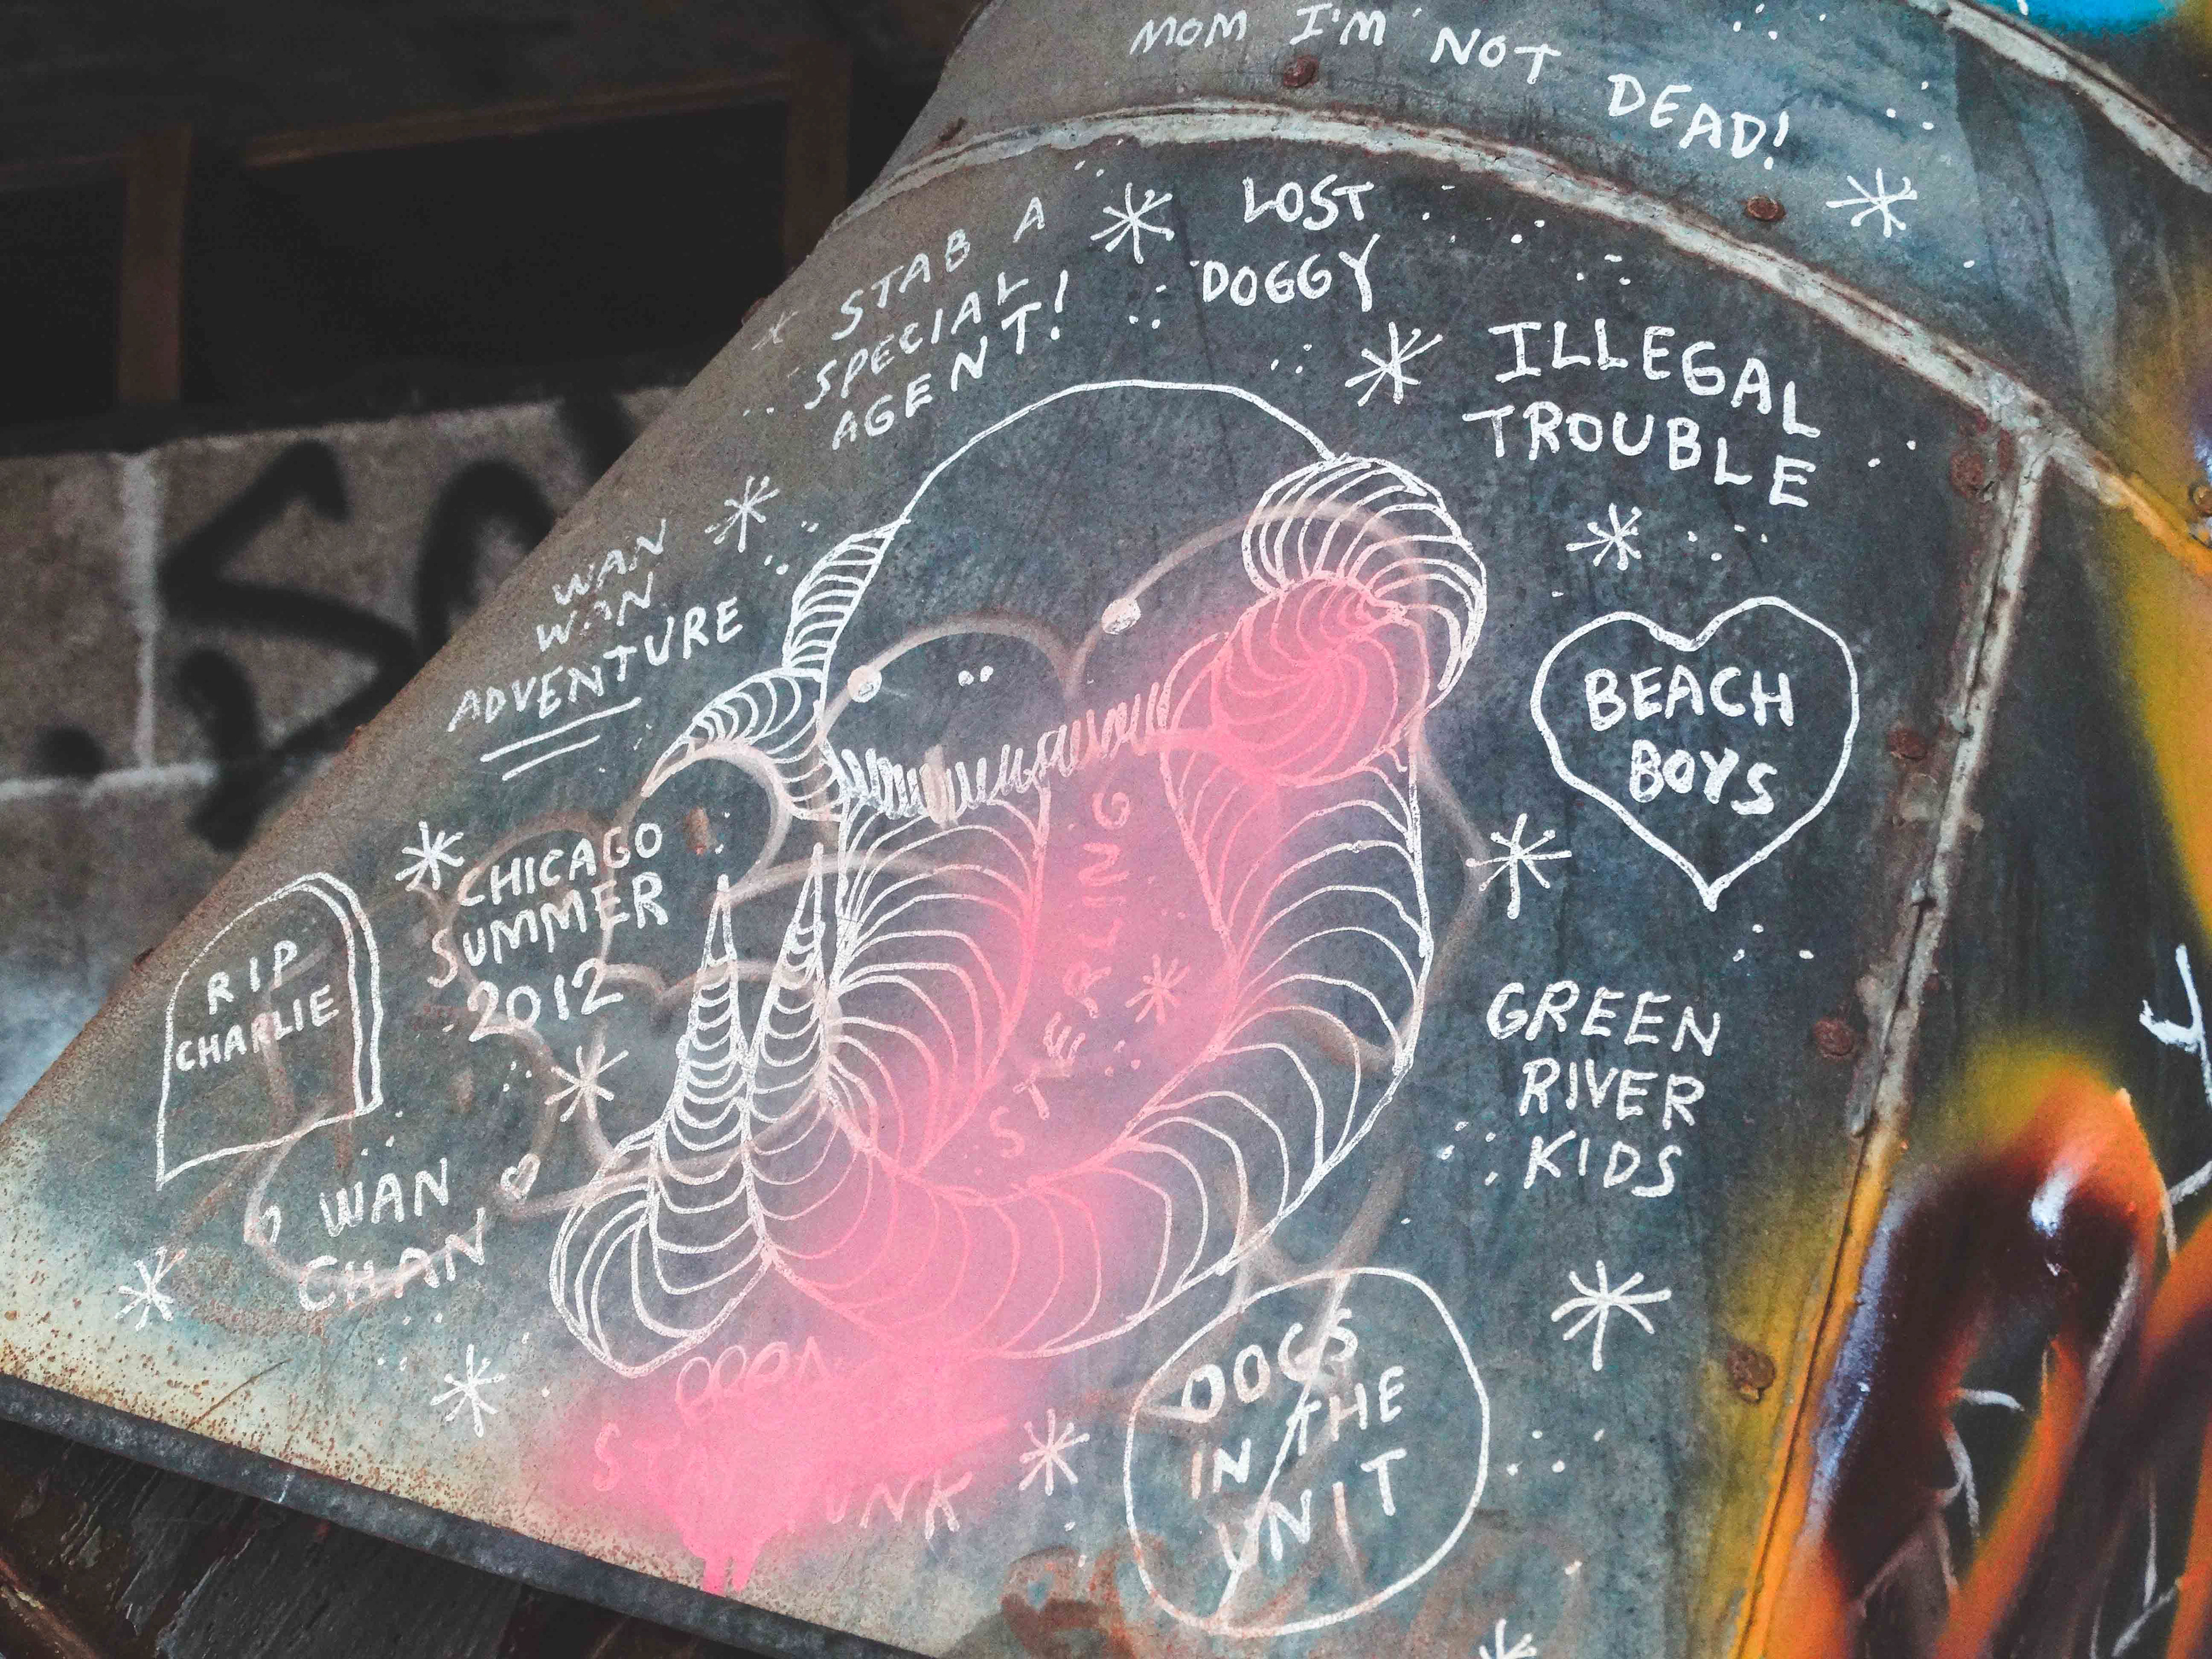 MOM I'M NOT DEAD!
STAB A
SPECIAL
AGENT!
LOST
DOGGY
ILLEGAL
TROUBLE
WAN
WAN
ADVENTURE
BEACH
BOYS
CHICAGO
SUMMER
2012
RIP
CHARLIE
STERLING
GREEN
RIVER
KIDS
WAN
CHAN
DOGS
IN THE
UNIT